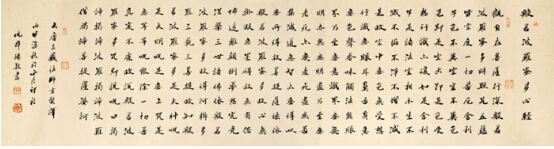 般若波羅蜜多心經
觀自在菩薩行深般若
波羅蜜多時照見五蘊
皆空度一切苦厄舍利
子色不異空空不異色
色即是空空即是色受
想行識亦復如是舍利
子是諸法空相不生不
滅不垢不淨不增不減
是故空中無色無受想
行識無眼耳鼻舌身意
無色聲香味觸法無眼
界乃至無意識界無無
明亦無無明盡乃至無
老死亦無老死盡無苦
集滅道無智亦無得以
無所得故菩提薩埵依
般若波羅蜜多故心無
罣礙無罣礙故無有恐
怖遠離顛倒夢想究竟
涅槃三世諸佛依般若
波羅蜜多故得阿耨多
羅三藐三菩提故知般
若波羅蜜多是大神咒
是大明咒是無上咒是
無等等咒能除一切苦
真實不虛故說般若波
羅蜜多咒即說咒曰揭
諦揭諦波羅揭諦波羅
僧揭諦菩提薩婆訶
大唐三藏法師玄奘譯
丙申深秋於
敬書